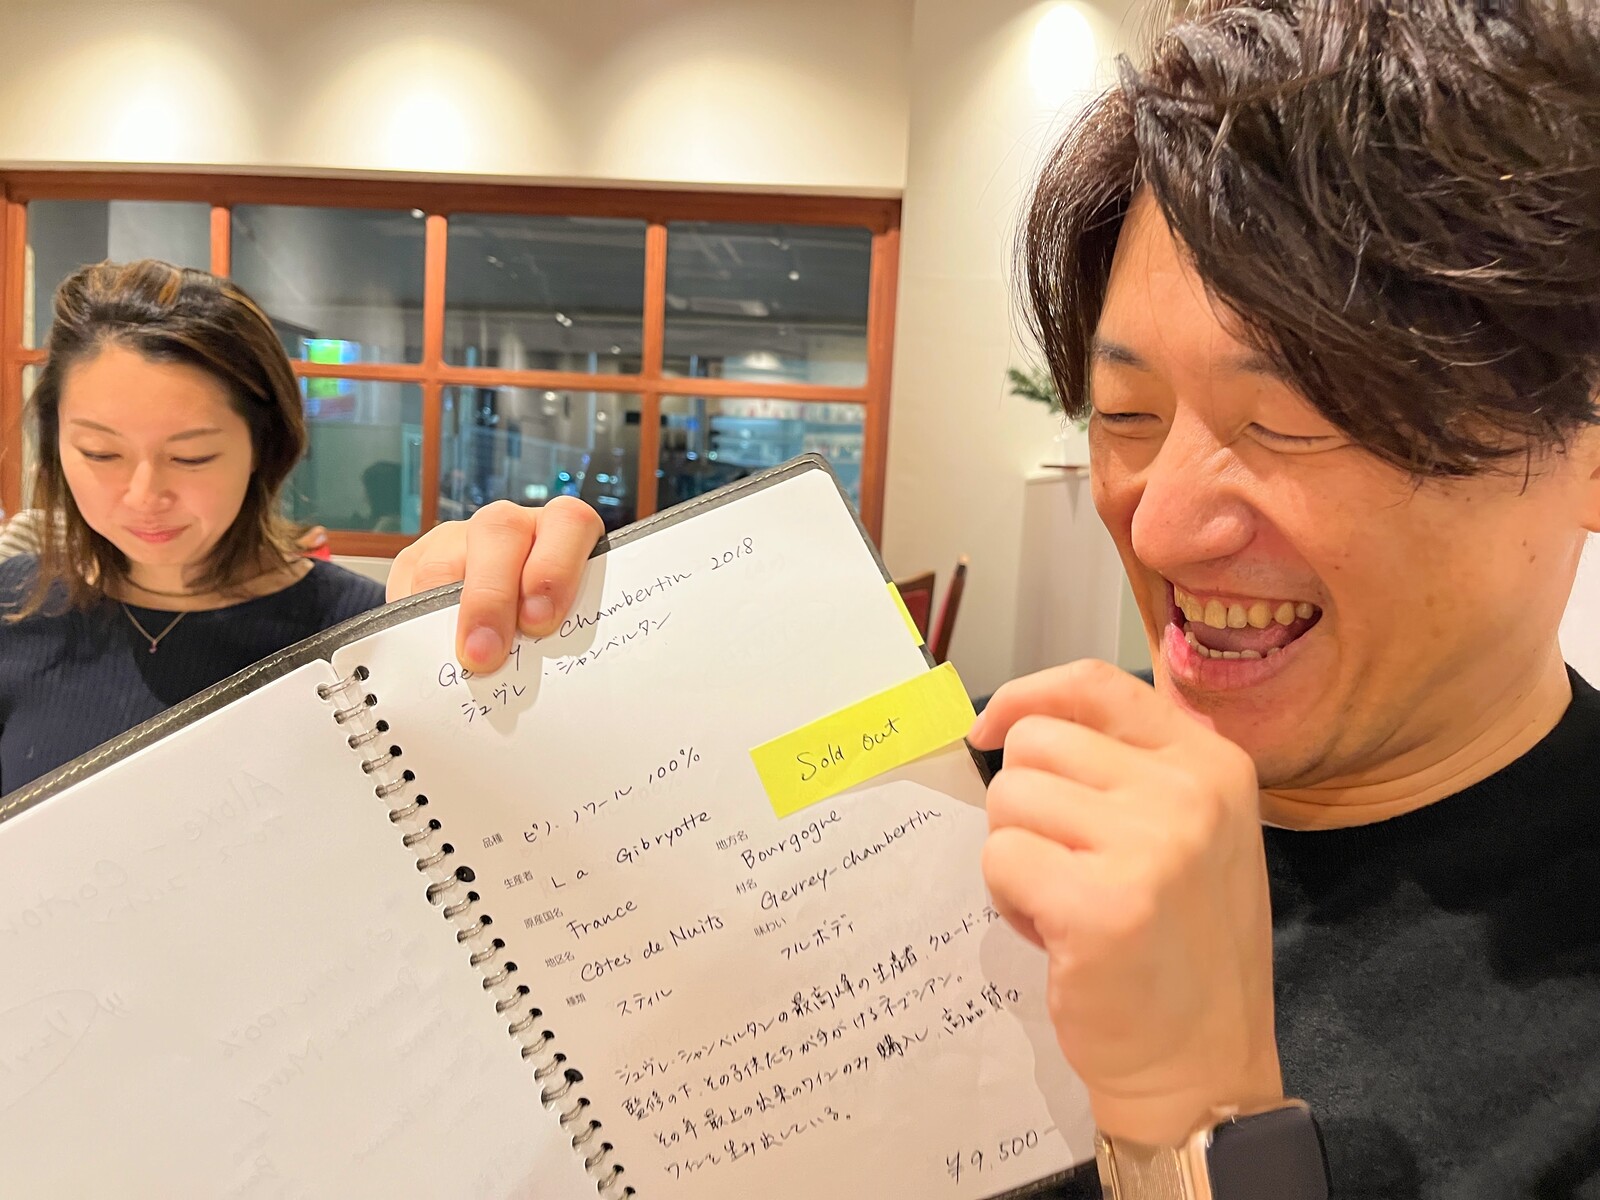 Chambertin 2018
ジュヴレ・シャンベルタン
Sold out
品種 ピノ・ノワール 100%
生産者 La Gibryotte
地方名 Bourgogne
原産国名 France
村名 Gevrey-chambertin
地区名 Côtes de Nuits
味わい フルボディ
種類 スティル
ジュヴレ・シャンベルタンの最高峰の生産者、クロード・デュ
監修の下、その子供たちが手がけるネゴシアン。
その年最上の出来のワインのみ購入し、高品質な
ワインを生み出している。
¥9,500-